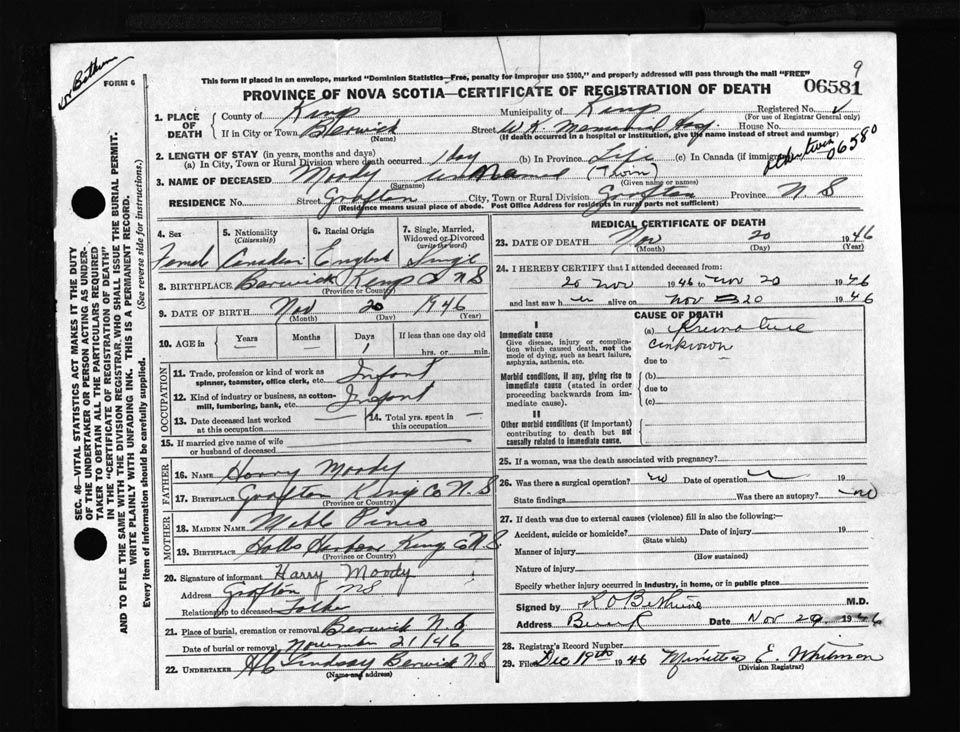 Dr Bethune
FORM 6
This form if placed in an envelope, marked "Dominion Statistics—Free, penalty for improper use $300," and properly addressed will pass through the mail "FREE"
9
06581
PROVINCE OF NOVA SCOTIA—CERTIFICATE OF REGISTRATION OF DEATH
1. PLACE OF DEATH
County of Kings Municipality of Kings Registered No.
(For use of Registrar General only)
If in City or Town Berwick Street W. K. Memorial Hosp. House No.
(Name) (If death occurred in a hospital or institution, give the name instead of street and number)
2. LENGTH OF STAY (in years, months and days)
(a) In City, Town or Rural Division where death occurred 1 day (b) In Province Life (c) In Canada (if immigrant)
other twin 06580
3. NAME OF DECEASED Moody un Named (Twin)
(Surname) (Given name or names)
RESIDENCE No. Street Grafton City, Town or Rural Division Grafton Province N. S
(Residence means usual place of abode. Post Office Address for residents in rural parts not sufficient)
4. Sex 5. Nationality (Citizenship) 6. Racial Origin 7. Single, Married, Widowed or Divorced (write the word)
Female Canadian English Single
8. BIRTHPLACE Berwick Kings N S
(Province or Country)
9. DATE OF BIRTH Nov 20 1946
(Month) (Day) (Year)
10. AGE in Years Months Days If less than one day old
— — 1 hrs. or min.
OCCUPATION
11. Trade, profession or kind of work as spinner, teamster, office clerk, etc. Infant
12. Kind of industry or business, as cotton-mill, lumbering, bank, etc. Infant
13. Date deceased last worked at this occupation 14. Total yrs. spent in this occupation —
15. If married give name of wife or husband of deceased
FATHER
16. NAME Harry Moody
17. BIRTHPLACE Grafton Kings Co N. S
(Province or Country)
MOTHER
18. MAIDEN NAME Pineo
19. BIRTHPLACE Halls Harbour Kings Co N. S
(Province or Country)
20. Signature of informant Harry Moody
Address Grafton NS
Relationship to deceased Father
21. Place of burial, cremation or removal Berwick N. S
Date of burial or removal November 21/46
22. UNDERTAKER Lindsay Berwick N S
(Name and address)
MEDICAL CERTIFICATE OF DEATH
23. DATE OF DEATH Nov 20 1946
(Month) (Day) (Year)
24. I HEREBY CERTIFY that I attended deceased from:
20 Nov 1946 to Nov 20 1946
and last saw her alive on Nov 20 1946
CAUSE OF DEATH
I
Immediate cause
Give disease, injury or complication which caused death, not the mode of dying, such as heart failure, asphyxia, asthenia, etc.
(a) Premature
unknown
due to —
Morbid conditions, if any, giving rise to immediate cause (stated in order proceeding backwards from immediate cause).
(b)
due to
(c)
II
Other morbid conditions (if important) contributing to death but not causally related to immediate cause.
25. If a woman, was the death associated with pregnancy?
26. Was there a surgical operation? no Date of operation 19
State findings Was there an autopsy? no
27. If death was due to external causes (violence) fill in also the following:—
Accident, suicide or homicide? Date of injury 19
(State which)
Manner of injury
(How sustained)
Nature of injury
Specify whether injury occurred in industry, in home, or in public place
Signed by R O Bethune M.D.
Address Date Nov 29 1946
28. Registrar's Record Number
29. Filed Dec 19th 1946 E. Whitman
(Division Registrar)
SEC. 46—VITAL STATISTICS ACT MAKES IT THE DUTY
OF THE UNDERTAKER OR PERSON ACTING AS UNDERTAKER TO OBTAIN ALL THE PARTICULARS REQUIRED
IN THE "CERTIFICATE OF REGISTRATION OF DEATH"
AND TO FILE THE SAME WITH THE DIVISION REGISTRAR WHO SHALL ISSUE THE BURIAL PERMIT.
WRITE PLAINLY WITH UNFADING INK. THIS IS A PERMANENT RECORD.
Every item of information should be carefully supplied. (See reverse side for instructions.)